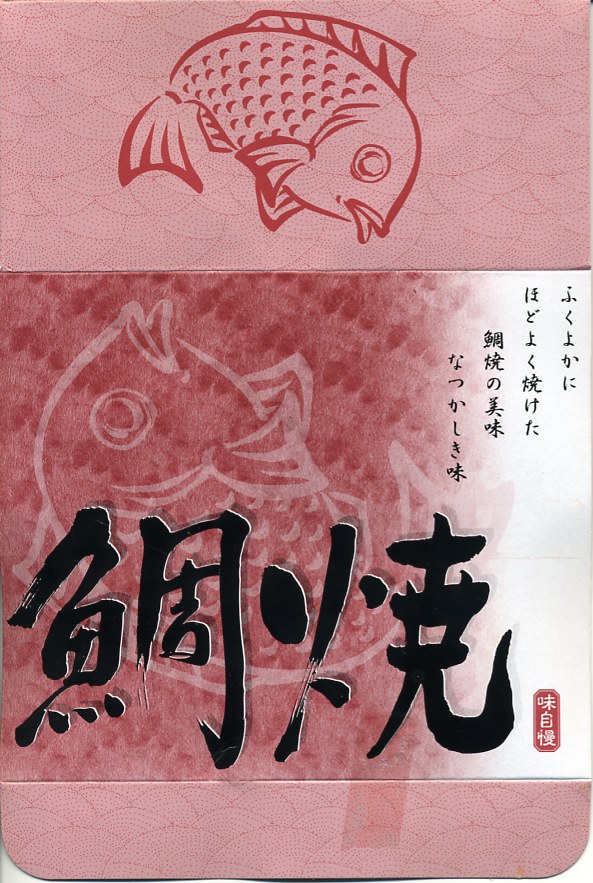 ふくよかに
ほどよく焼けた
鯛焼の美味
なつかしき味
鯛焼
味自慢